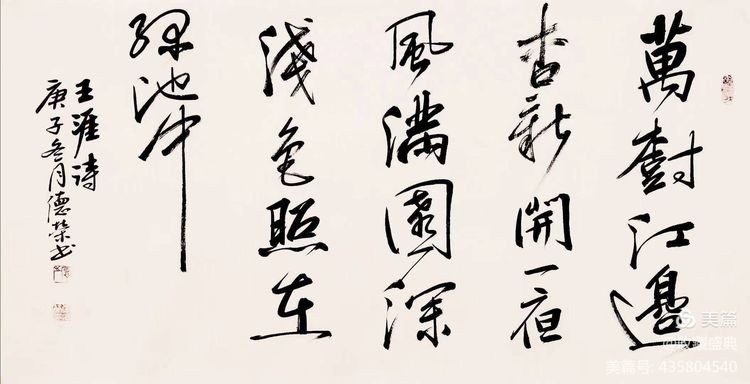 萬樹江邊
杏新開一亱
風滿園深
淺色照在
綠池中
王涯诗
庚子冬月德荣书
美篇
盛典
美篇号: 435804540